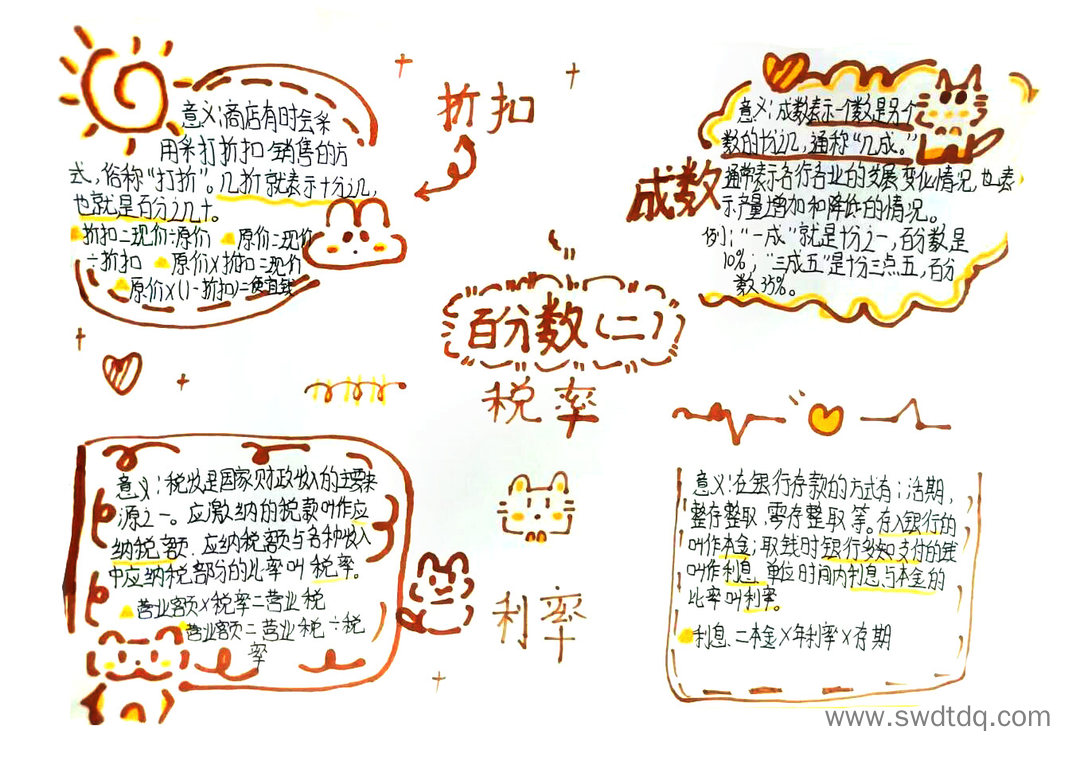 折扣
意义:商店有时会采
用采打折扣销售的方
式,俗称“打折”。几折就表示十分之几,
也就是百分之几十。
折扣=现价÷原价 原价=现价
÷折扣 原价×折扣=现价
原价×(1-折扣)=便宜钱
成数
意义:成数表示一个数是另个
数的十分之几,通称“几成。”
通常表示各行各业的发展变化情况,也表
示产量增加和降低的情况。
例:“一成”就是十分之一,百分数是
10%;“三成五”是十分三点五,百分
数35%。
百分数(二)
税率
意义:税收是国家财政收入的主要来
源之一。应缴纳的税款叫作应
纳税额.应纳税额与各种收入
中应纳税部分的比率叫税率。
营业额×税率=营业税
营业额=营业税÷税
率
利率
意义:在银行存款的方式有:活期,
整存整取,零存整取等。存入银行的
叫作本金;取钱时银行多支付的钱
叫作利息.单位时间内利息与本金的
比率叫利率。
利息.=本金×年利率×存期
www.swdtdq.com